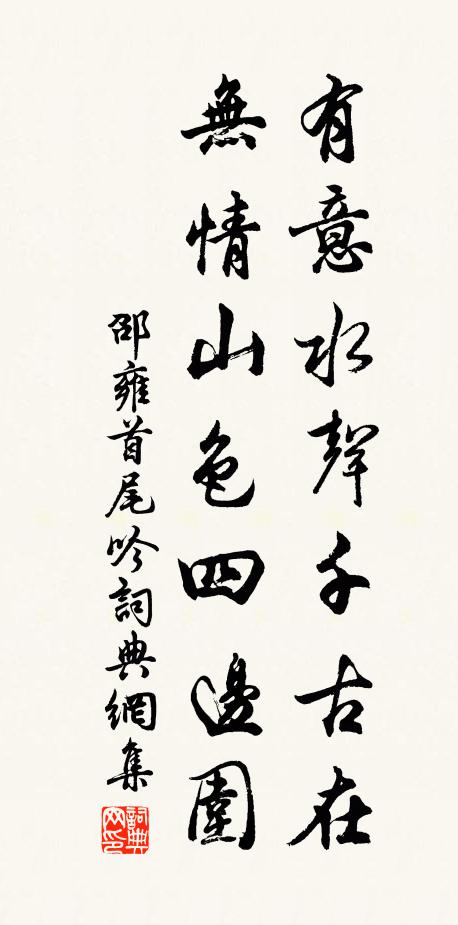 有意水聲千古在
無情山色四邊圍
邵雍首尾吟詞典網集
詞典網印